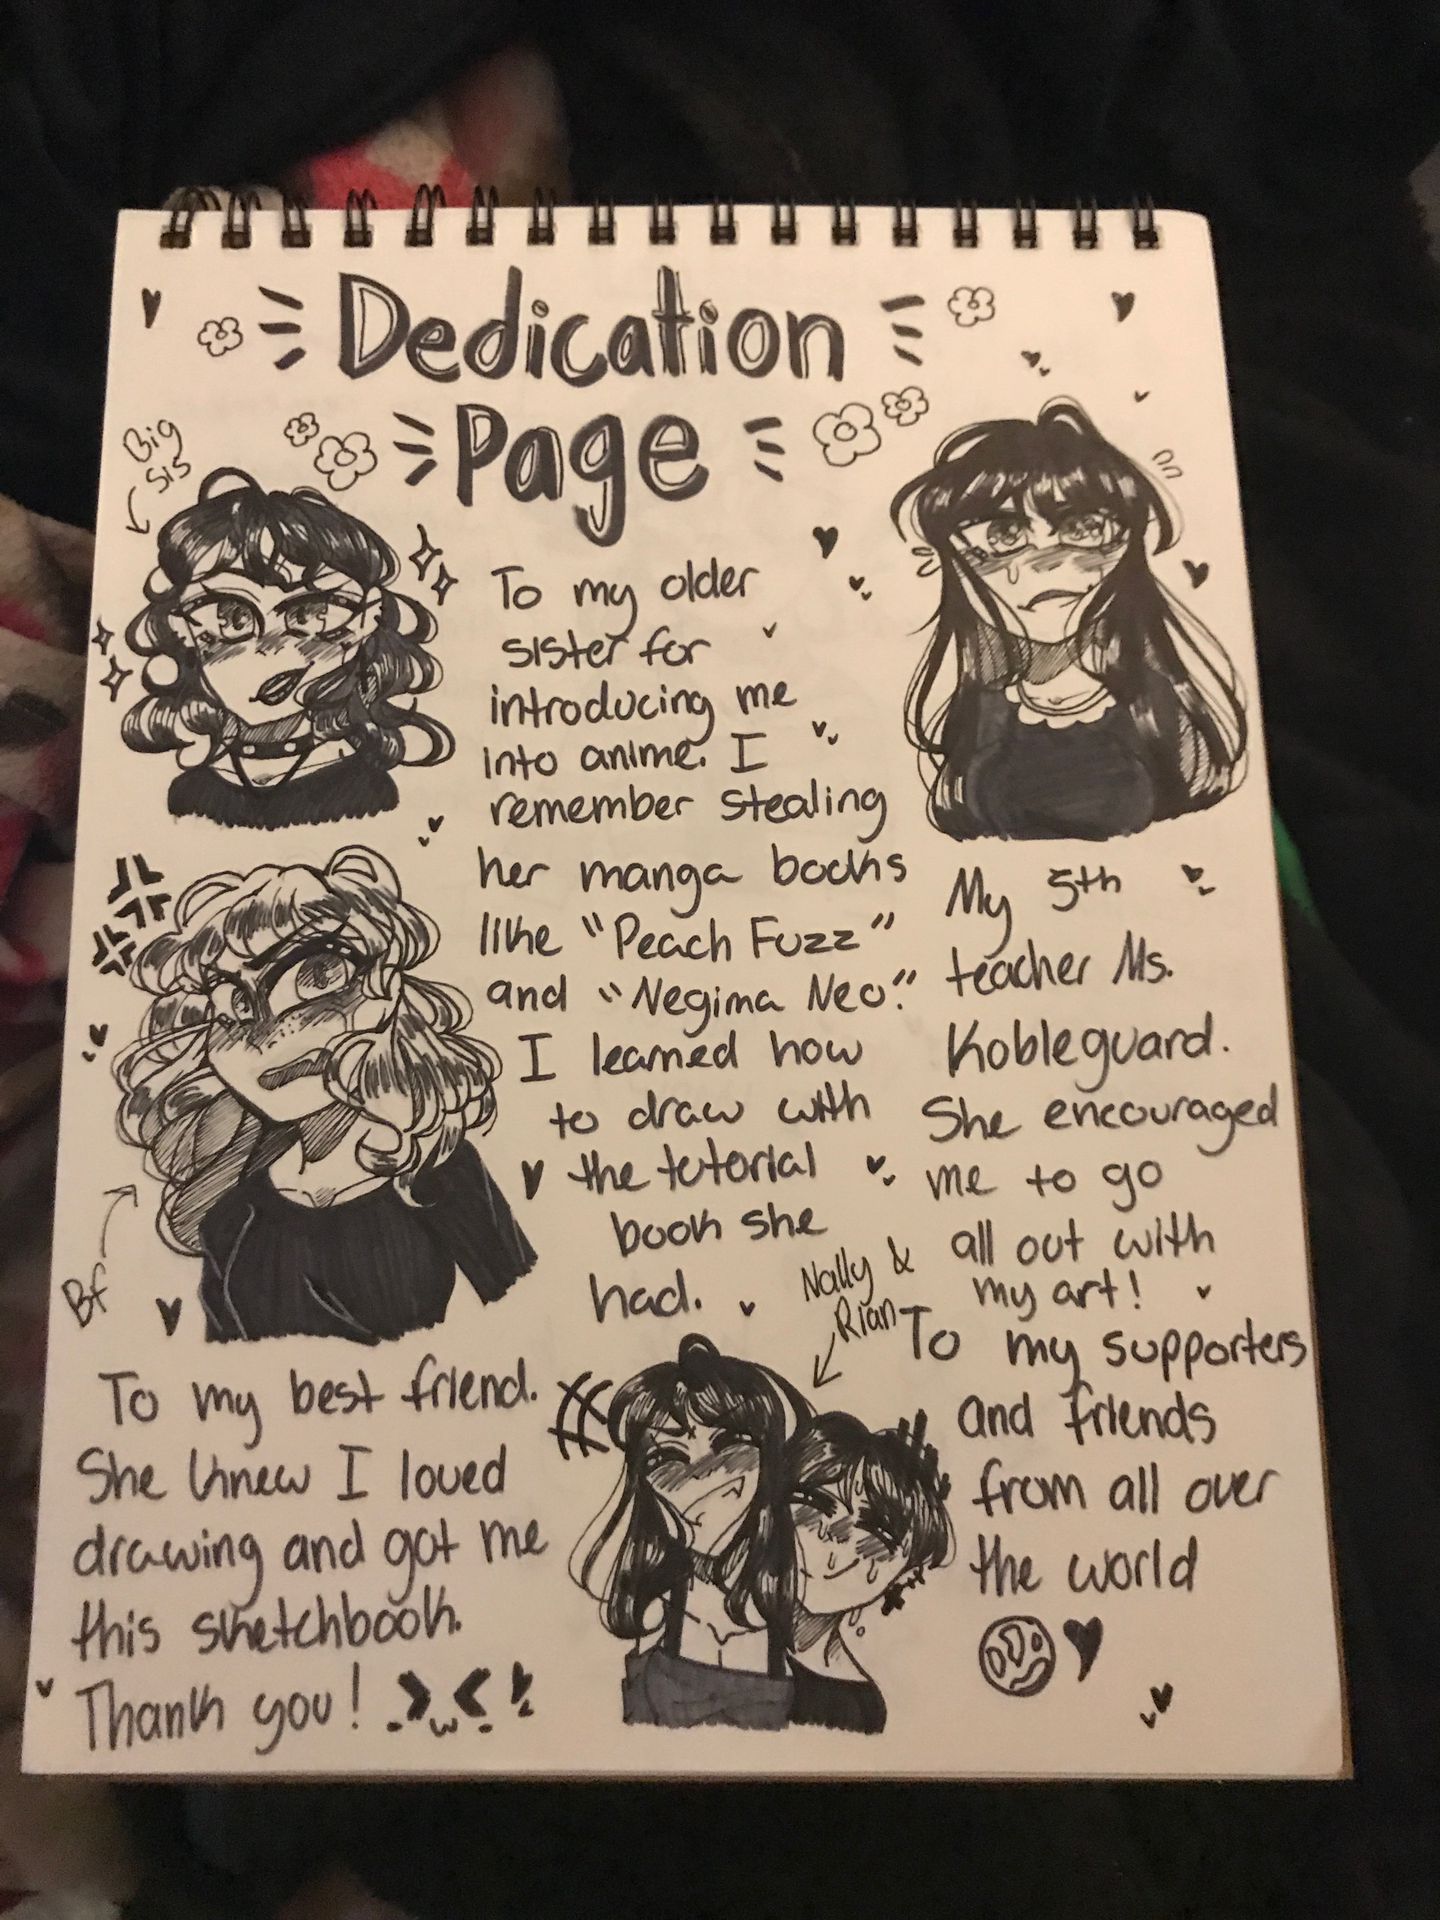 Dedication
Page
Big
sis
To my older
sister for
introducing me
into anime. I
remember stealing
her manga books
like "Peach Fuzz"
and "Negima Neo."
I learned how
to draw with
the tutorial
book she
had.
My 5th
teacher Ms.
Kobleguard.
She encouraged
me to go
all out with
my art!
Bf
To my best friend.
She knew I loved
drawing and got me
this sketchbook.
Thank you! >w<!
Nally &
Rian
To my supporters
and friends
from all over
the world